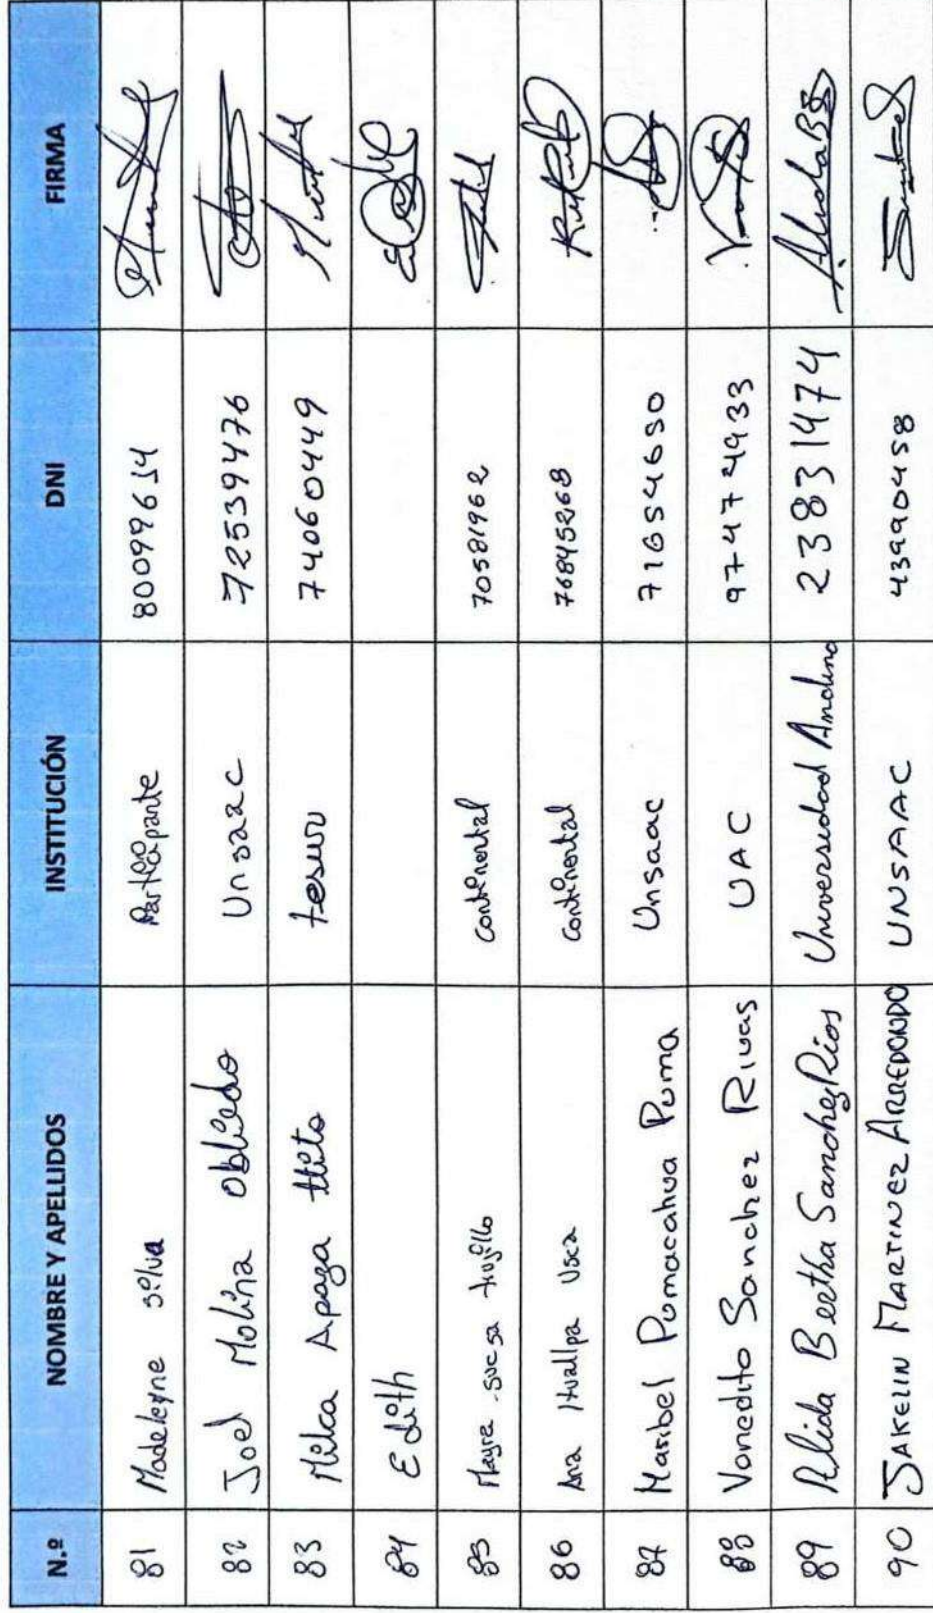 N.º NOMBRE Y APELLIDOS INSTITUCIÓN DNI FIRMA
81 Madeleyne Silva Participante 80099654
82 Joel Molina Obliedo Unsaac 72539476
83 Milca Apaza Ttito tesuro 74060449
84 Edith
85 Mayra Sucsa trujillo Continental 70581962
86 Ana Huallpa Usca Continental 76845268
87 Maribel Pumacahua Puma Unsaac 71654650
88 Vanedito Sanchez Rivas UAC 97474933
89 Alida Bertha Sanchez Rios Universidad Andina 23831474
90 JAKELIN MARTINEZ ARREDONDO UNSAAC 43990458